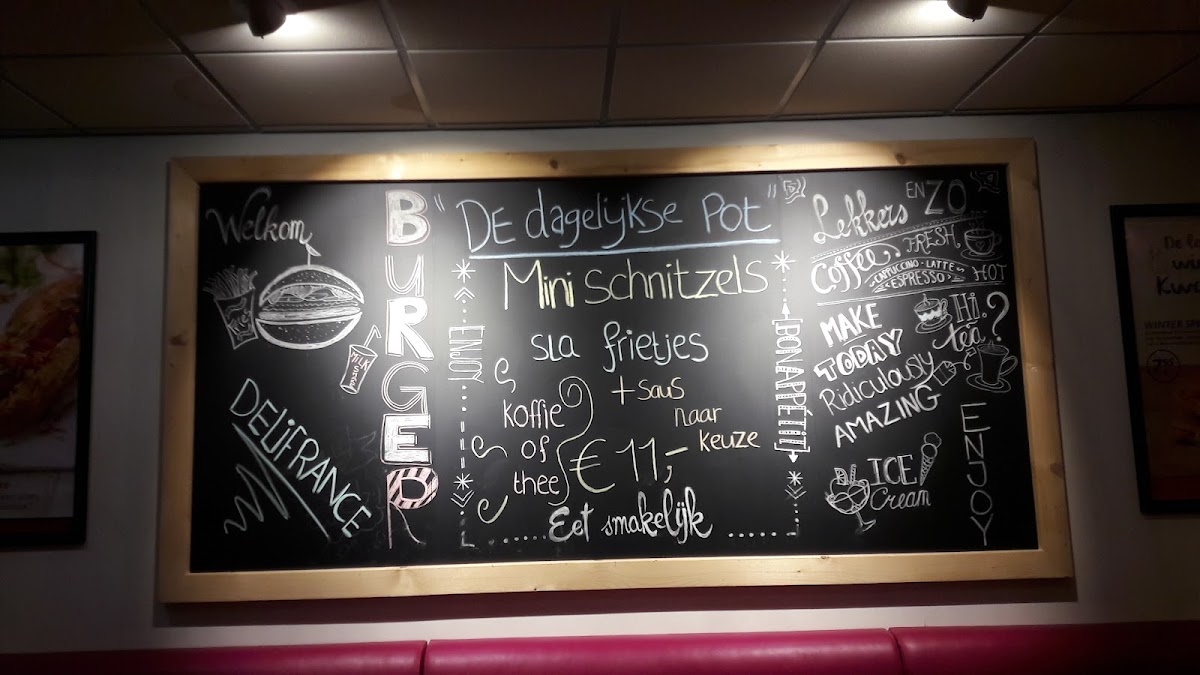 Welkom
BURGER
MILK
DELIFRANCE
"DE dagelijkse Pot"
Mini Schnitzels
sla frietjes
+ saus
naar
keuze
koffie
of
thee
€ 11,-
Eet smakelijk
ENJOY
BON APPÉTIT
Lekkers
EN ZO
Coffee FRESH
CAPPUCCINO · LATTE
ESPRESSO
HOT
MAKE
TODAY
Ridiculously
AMAZING
Hi.
tea?
ICE
Cream
ENJOY
De
WINTER